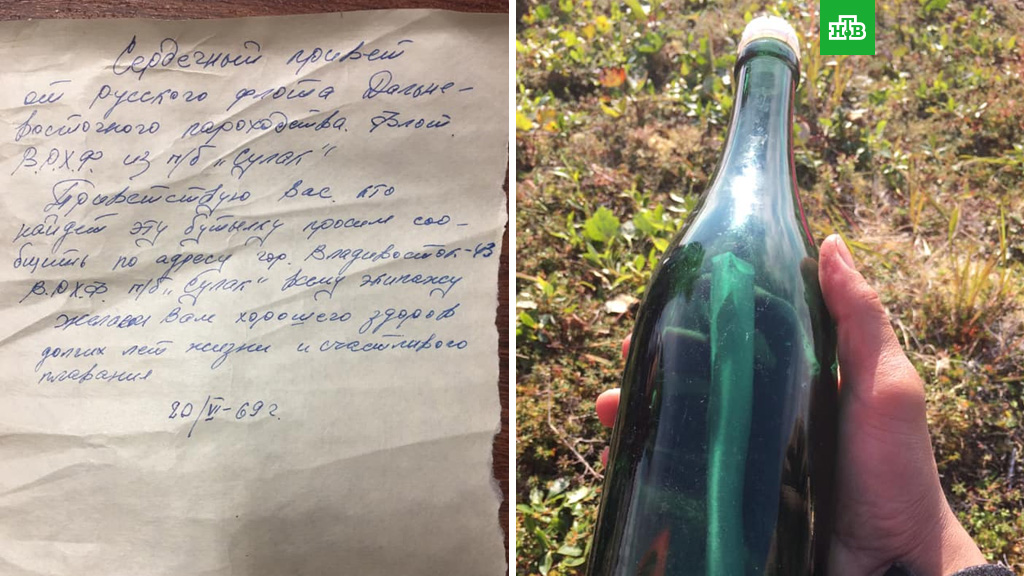 Сердечный привет
от русского флота Дальне-
восточного пароходства. Флот.
В.О.Х.Ф. из п/б „Сулак"
Приветствую Вас, кто
найдет эту бутылку просим соо-
бщить по адресу гор. Владивосток-43
В.О.Х.Ф. п/б „Сулак" всему экипажу
желаем Вам хорошего здоров
долгих лет жизни и счастливого
плавания
20/VI-69 г.
НТВ